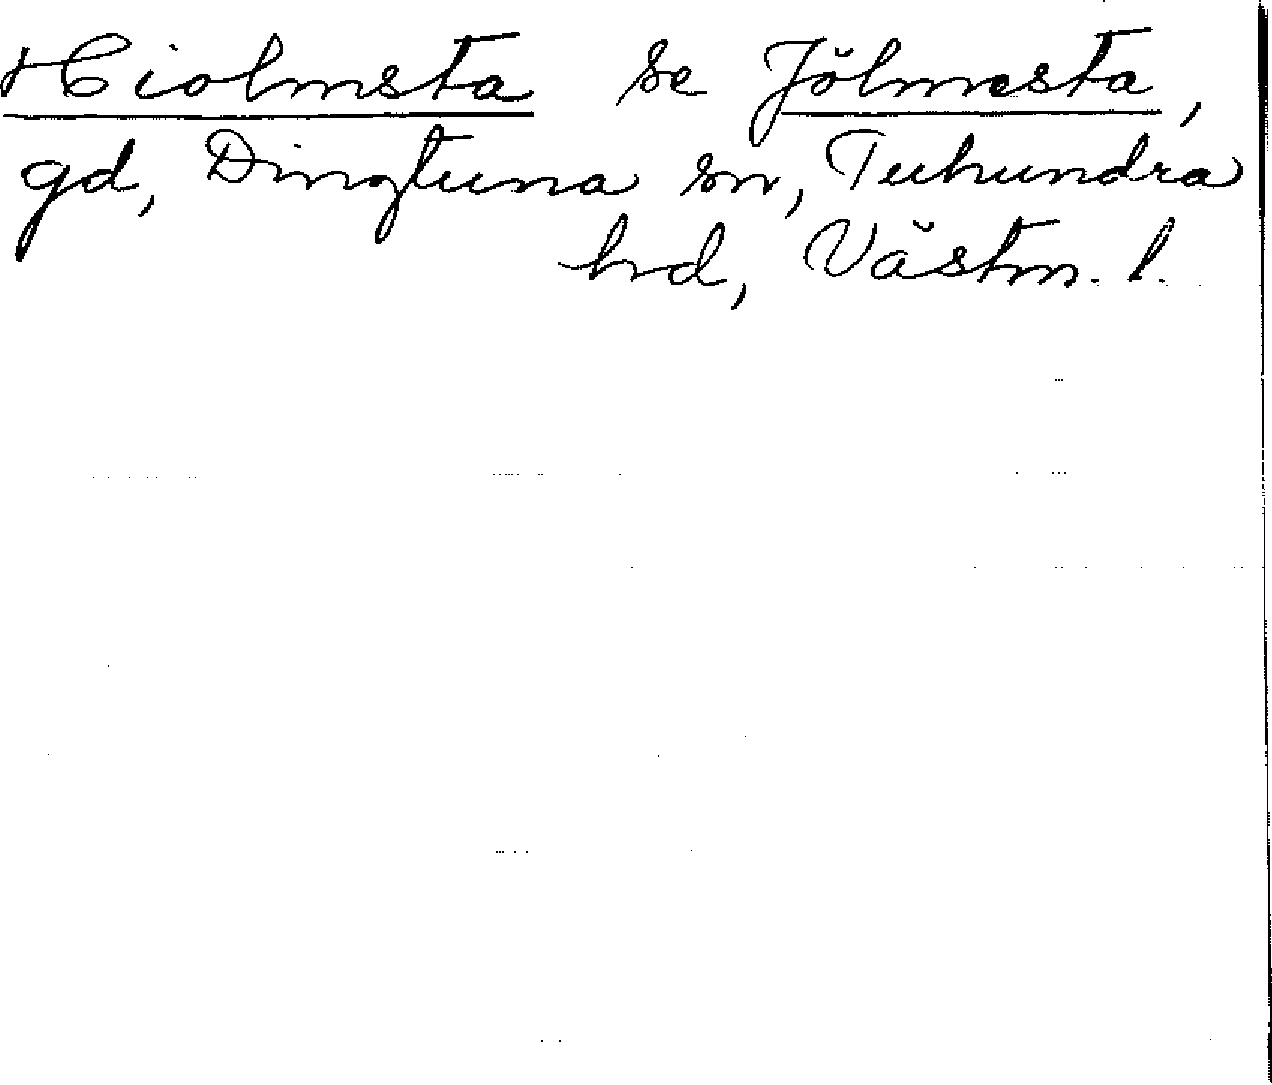 Hiolmsta se Jölmesta,
gd, Dingtuna sn, Tuhundra
hd, Västm. l.